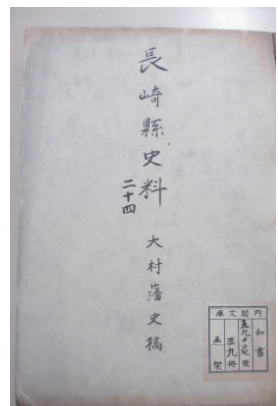 長崎縣史料
二十四
大村藩史稿
内閣文庫
和書
五九冊
函
架